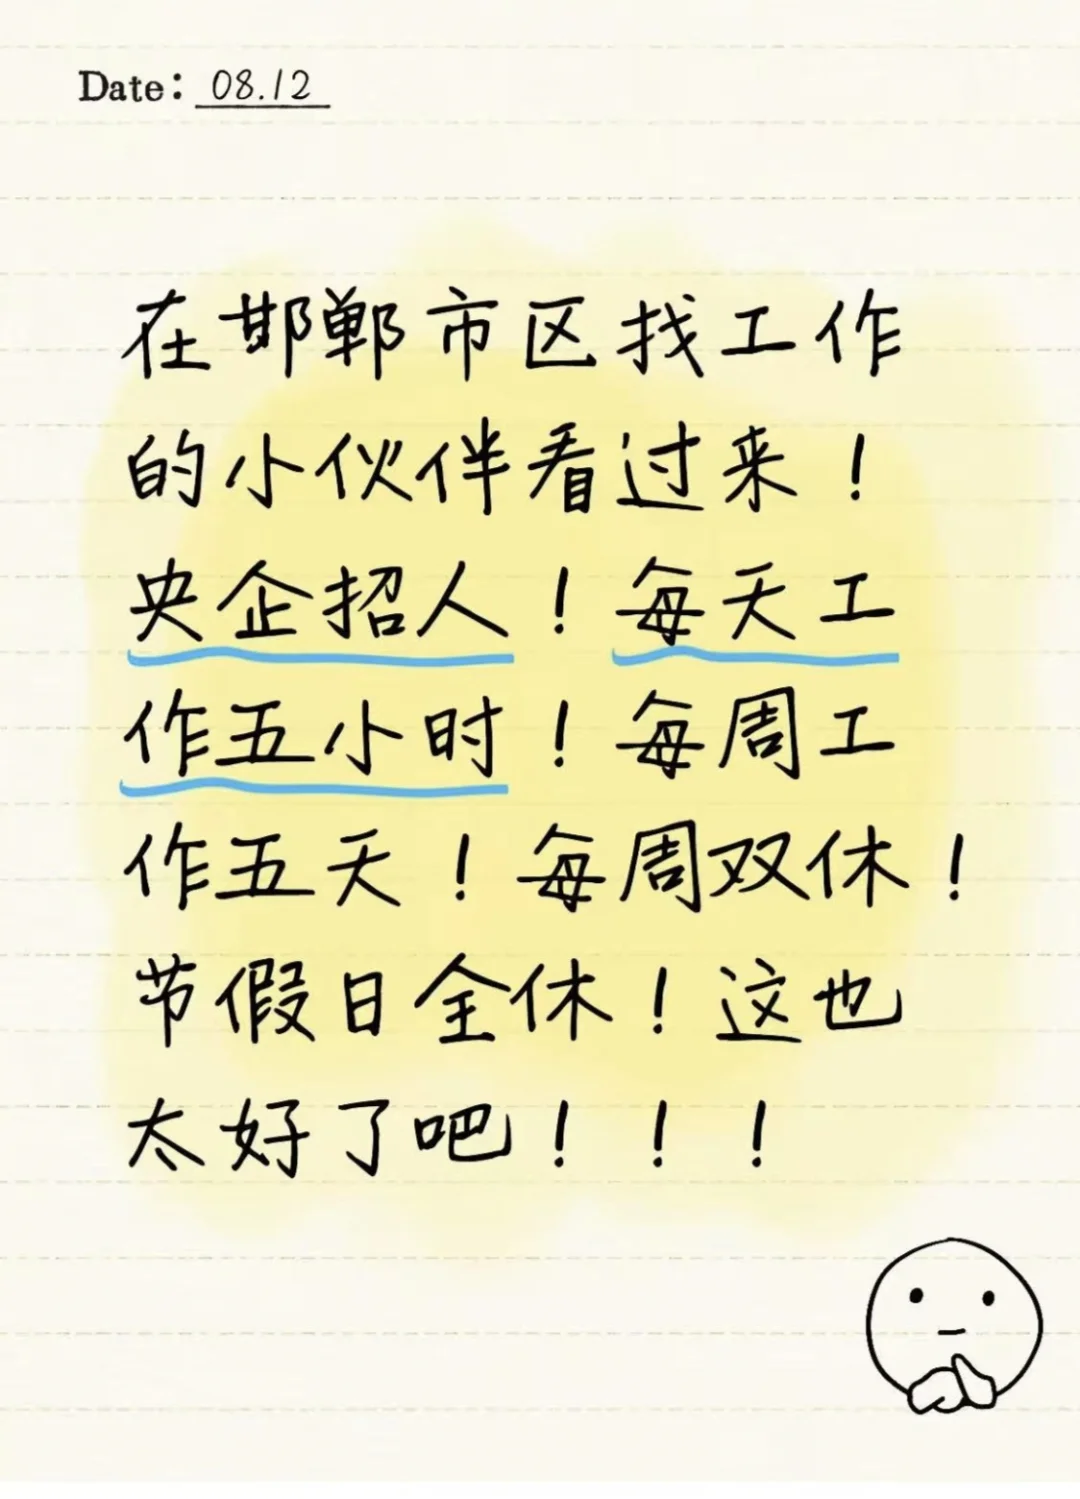 Date: 08.12
在邯郸市区找工作
的小伙伴看过来！
央企招人！每天工
作五小时！每周工
作五天！每周双休！
节假日全休！这也
太好了吧！！！